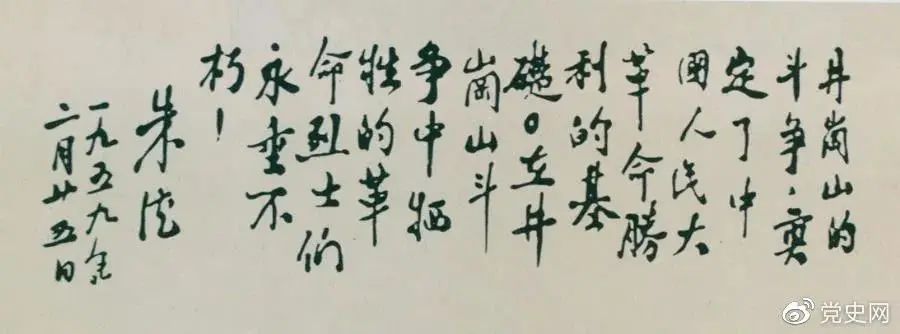 井崗山的
斗争，奠
定了中
國人民大
革命勝
利的基
礎。在井
崗山斗
争中牺
牲的革
命烈士们
永垂不
朽！
朱德
一九五九年
二月廿五日
党史网